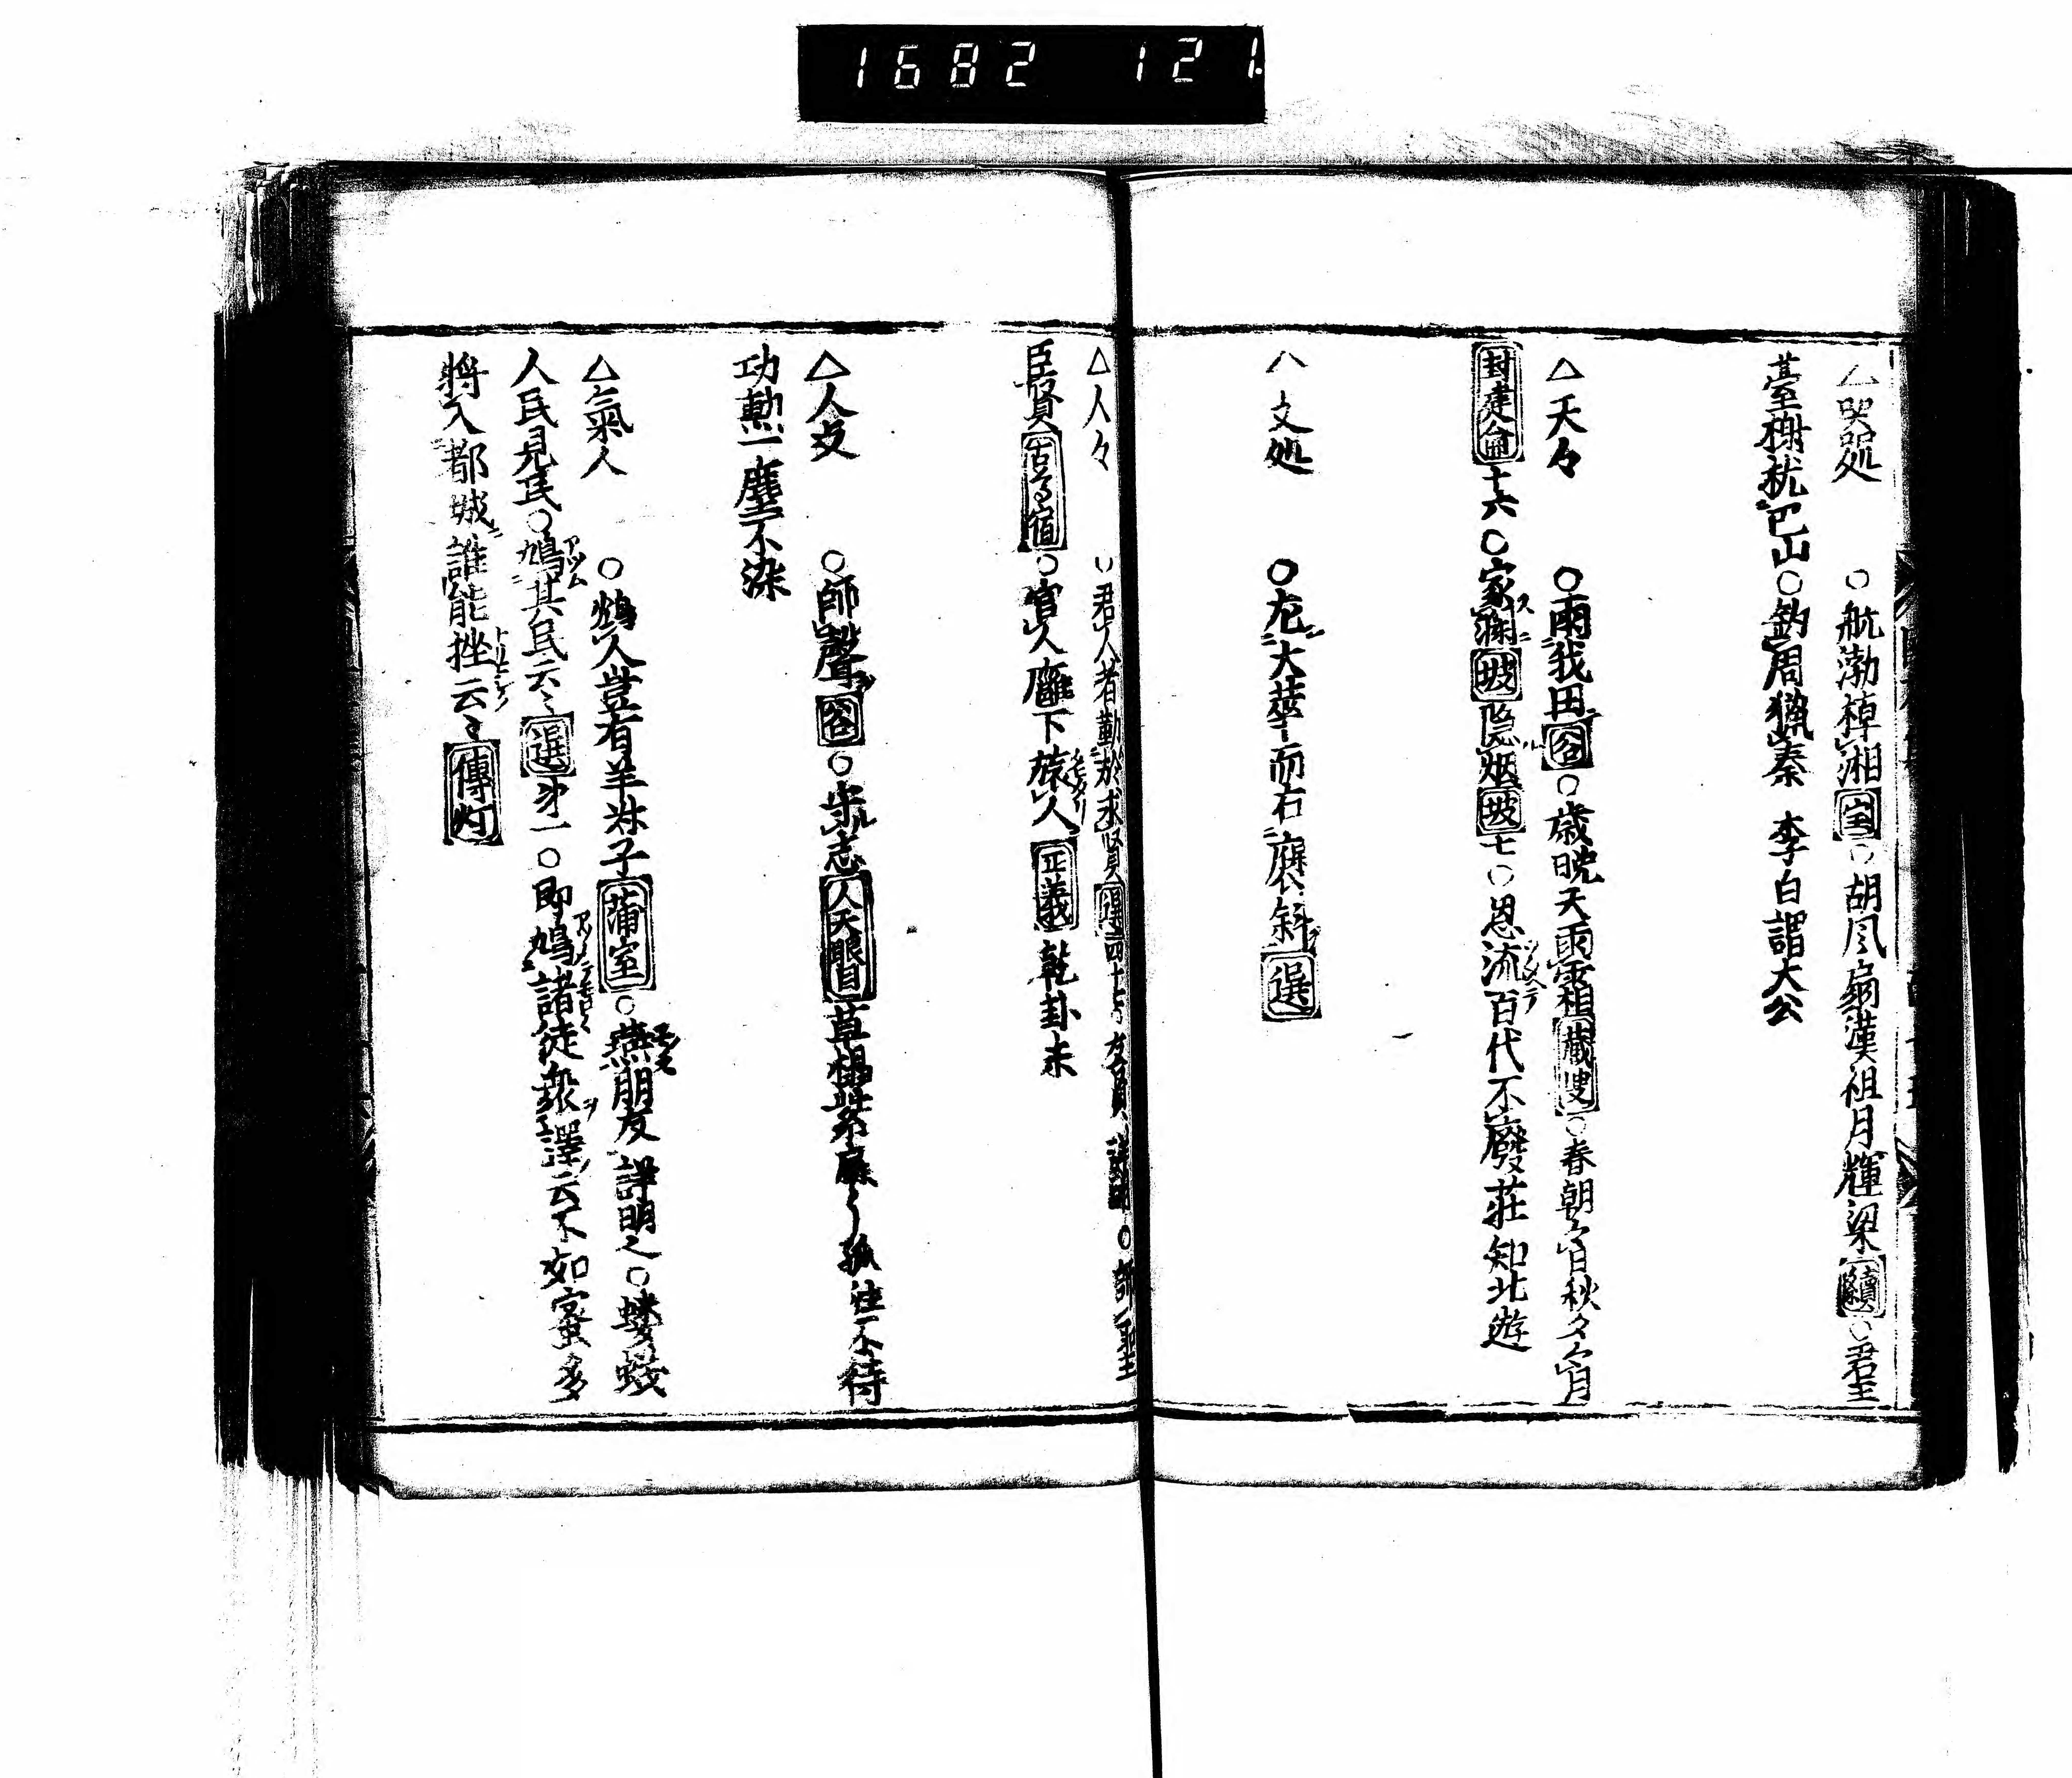 1682 121
△哭処 ○航渤棹湘宝○胡風扇漢祖月輝梁續○君至
臺榭就巴山○釣周獵秦 李白謂大公
△天々 ○雨我田谷○歳晩天雨霜蔵叟○春朝々日秋夕々月
封建侖十六○家渊坡隐烟坡七○恩流百代不廢荘知北遊
文処 ○左大華而右褒斜選
△人々 ○君人者勤於求賢選四十七
臣賢 ○官人廳下旅人正義乾卦末
△人文 ○師聲谷○歩志人天眼目草榻孤往不待
功勲一塵不染
△氣人 ○鵝人豈有羊叔子蒲室○燕朋友詳明之○螻蟻
人民見民○鳩其民云々選才一○即鳩諸徒衆譯云不如蜜多
將入都城誰能挫云々傳灯